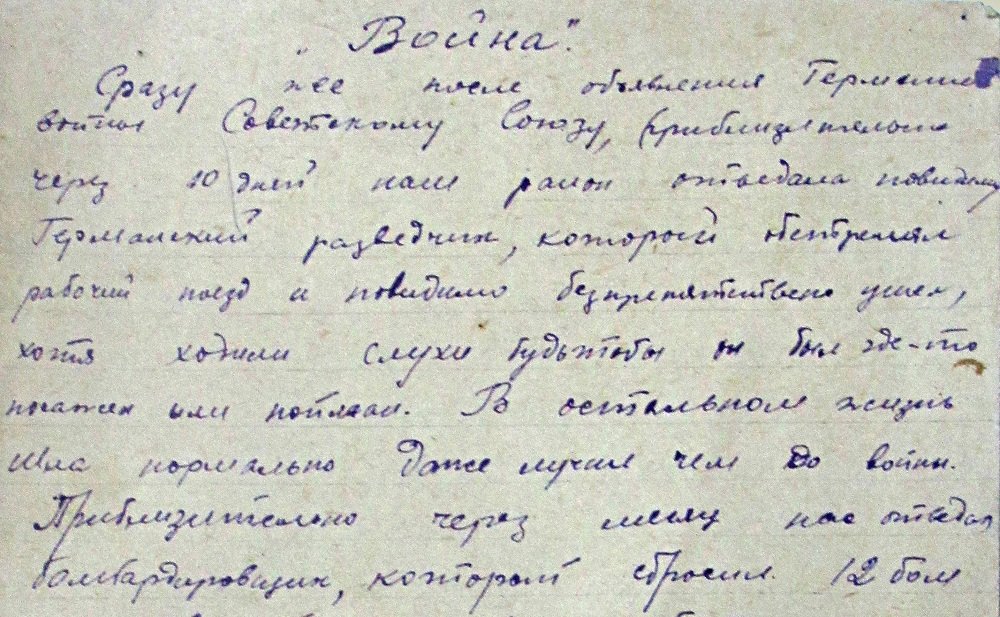 „Война".
Сразу же после объявления Германией
войны Советскому Союзу, приблизительно
через 10 дней наш район отведала повидимому
Германский разведчик, который обстрелял
рабочий поезд и повидимо безпрепятствено ушел,
хотя ходили слухи будьтобы он был где-то
посажен или пойман. В остальном жизнь
шла нормально даже лучше чем до войны.
Приблизительно через месяц нас отведал
бомбардировщик, который сбросил 12 бом